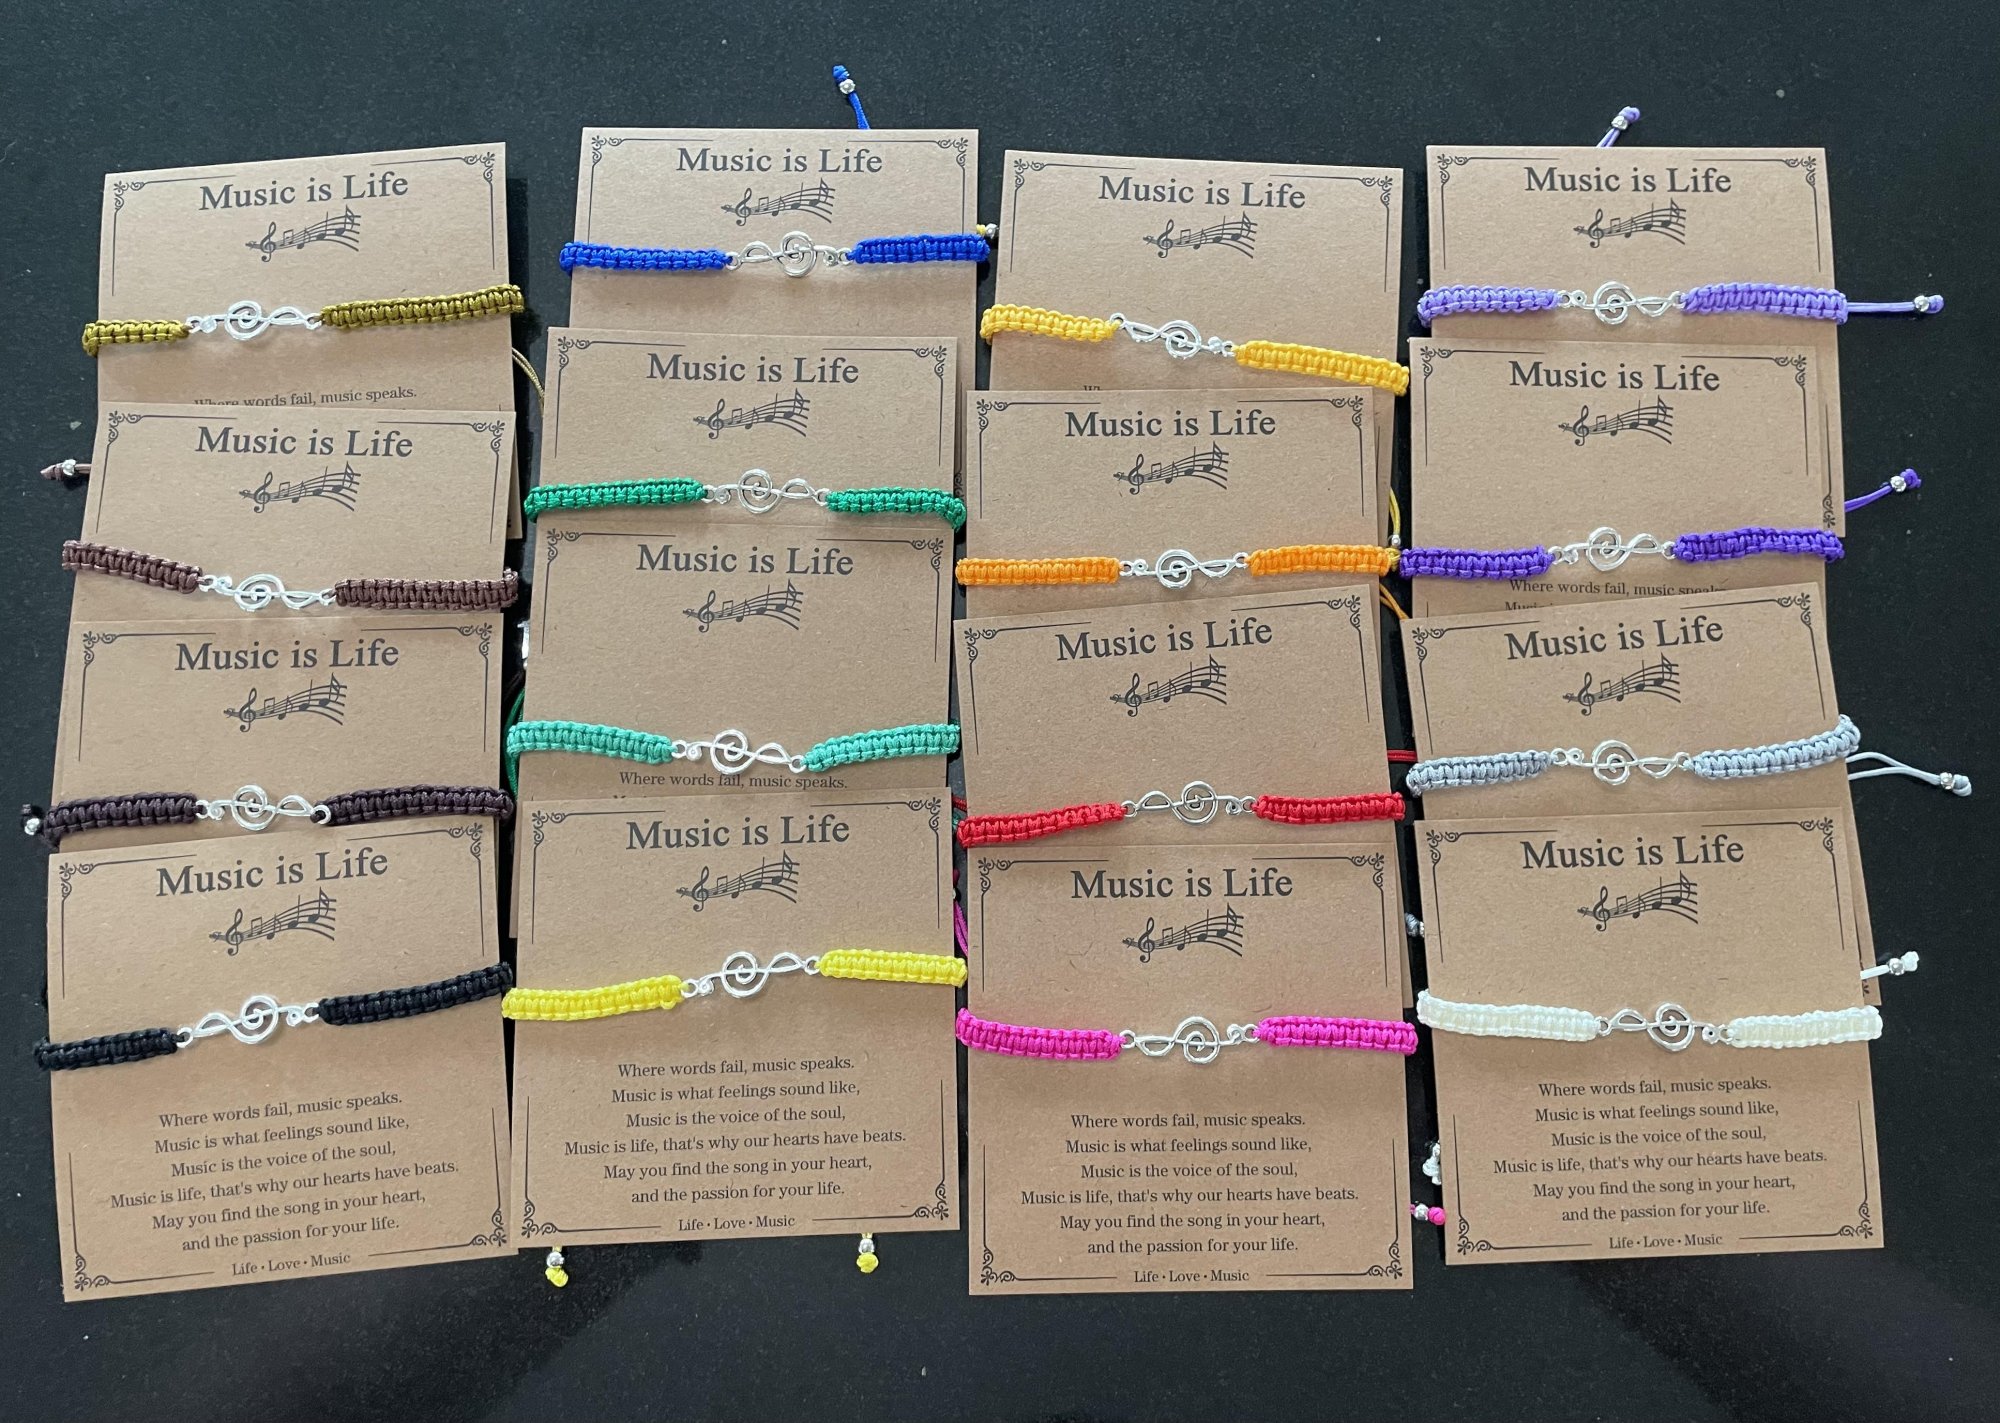 Music is Life
Where words fail, music speaks.
Music is Life
Music is Life
Music is Life
Where words fail, music speaks.
Music is what feelings sound like,
Music is the voice of the soul,
Music is life, that's why our hearts have beats.
May you find the song in your heart,
and the passion for your life.
Life • Love • Music
Music is Life
Music is Life
Music is Life
Where words fail, music speaks.
Music is Life
Where words fail, music speaks.
Music is what feelings sound like,
Music is the voice of the soul,
Music is life, that's why our hearts have beats.
May you find the song in your heart,
and the passion for your life.
Life • Love • Music
Music is Life
Music is Life
Music is Life
Music is Life
Where words fail, music speaks.
Music is what feelings sound like,
Music is the voice of the soul,
Music is life, that's why our hearts have beats.
May you find the song in your heart,
and the passion for your life.
Life • Love • Music
Music is Life
Music is Life
Where words fail, music speaks
Music is Life
Music is Life
Where words fail, music speaks.
Music is what feelings sound like,
Music is the voice of the soul,
Music is life, that's why our hearts have beats.
May you find the song in your heart,
and the passion for your life.
Life • Love • Music